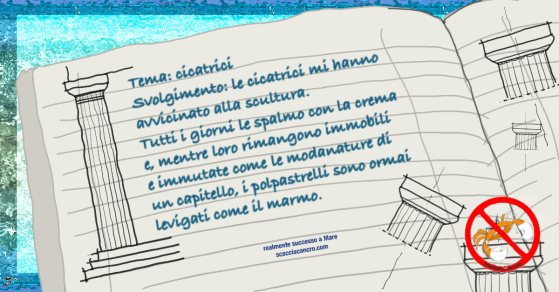 Tema: cicatrici
Svolgimento: le cicatrici mi hanno
avvicinato alla scultura.
Tutti i giorni le spalmo con la crema
e, mentre loro rimangono immobili
e immutate come le modanature di
un capitello, i polpastrelli sono ormai
levigati come il marmo.
realmente successo a Mare
scacciacancro.com